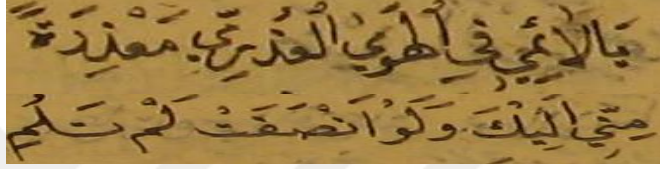 يَالَائِمِي فِي الْهَوَى الْعُذْرِيِّ مَعْذِرَةً
مِنِّي اِلَيْكَ وَلَوْ اَنْصَفْتَ لَمْ تَلُمِ